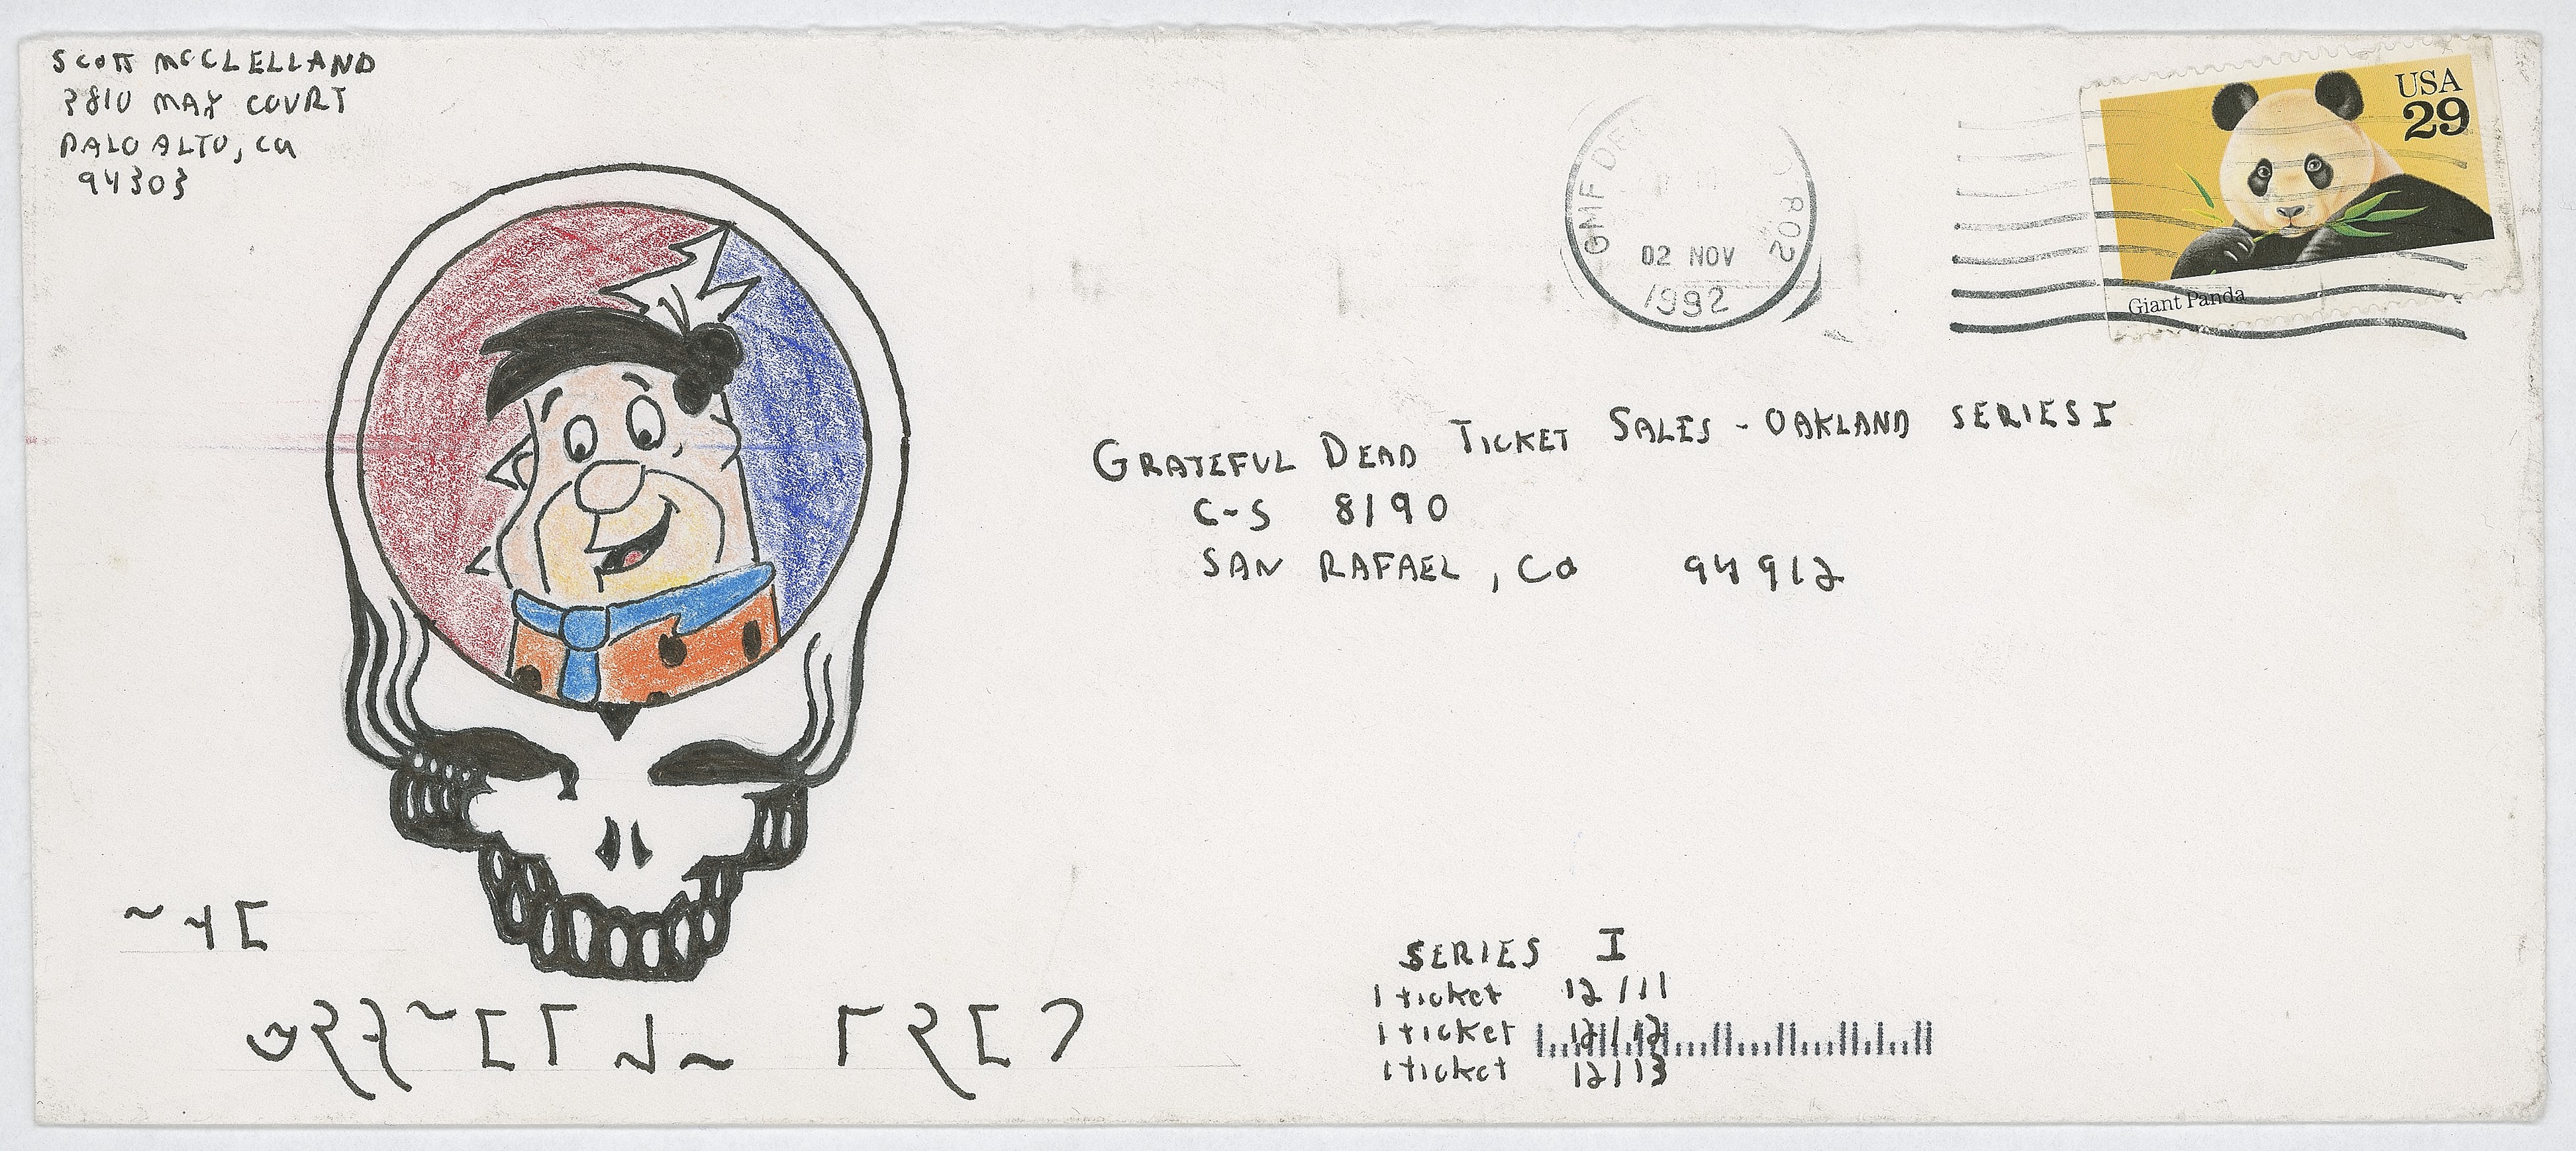 SCOTT McCLELLAND
3810 MAY COURT
PALO ALTO, Ca
94303
USA
29
Giant Panda
GMF
802
02 NOV
1992
GRATEFUL DEAD TICKET SALES - OAKLAND SERIES I
C-S 8190
SAN RAFAEL, Ca 94912
SERIES I
1 ticket 12/11
1 ticket 12/12
1 ticket 12/13